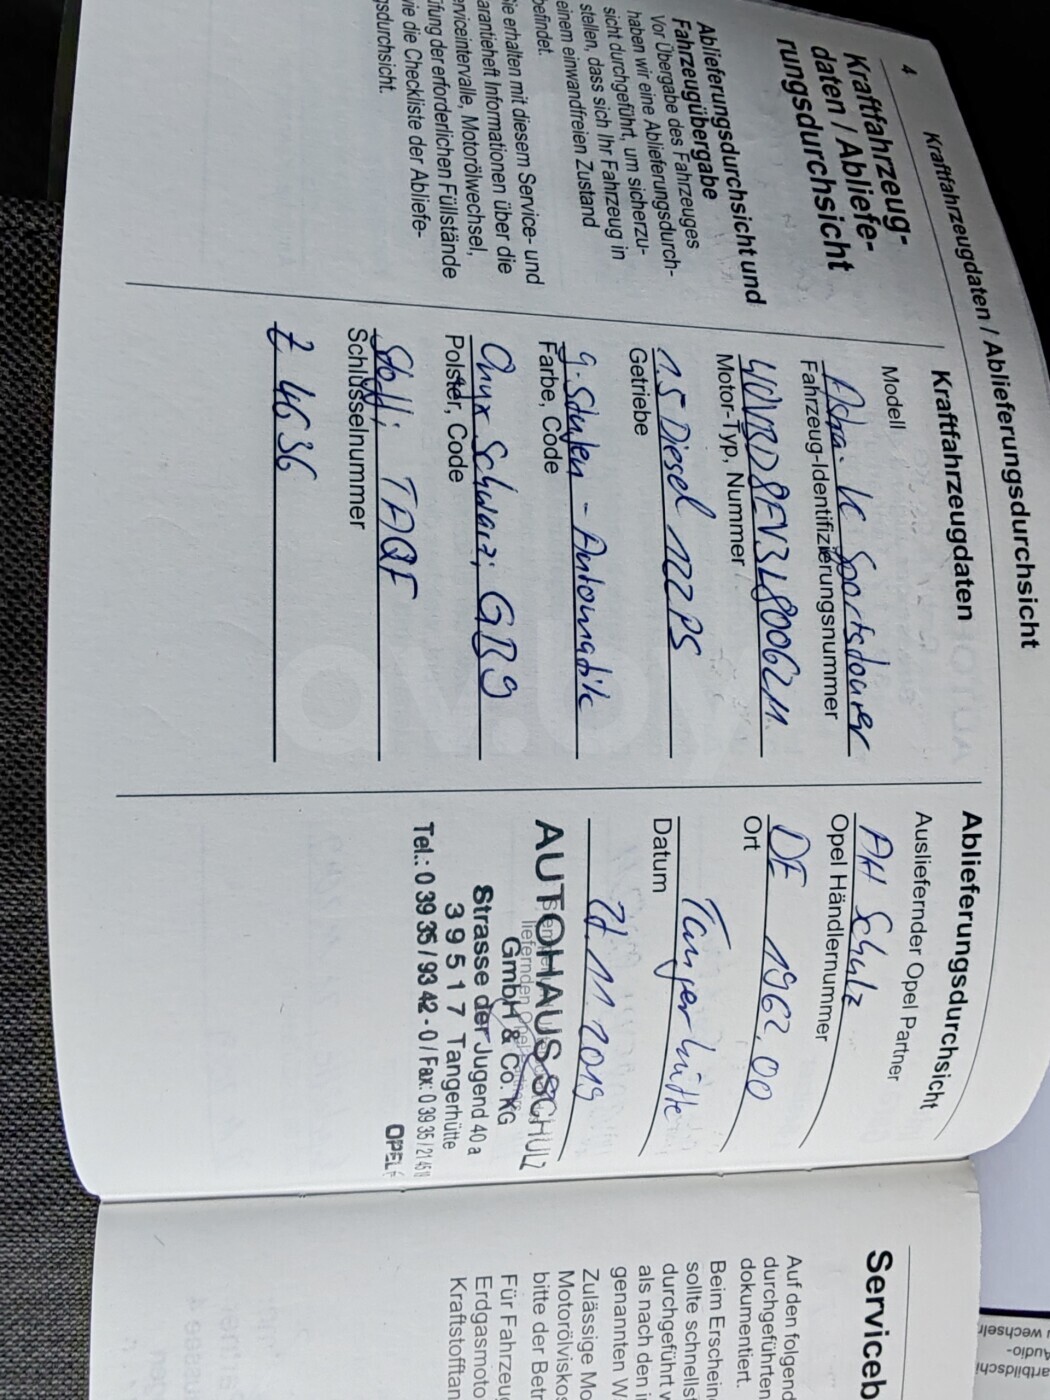 4
Kraftfahrzeugdaten / Ablieferungsdurchsicht
Kraftfahrzeug-
daten / Abliefe-
rungsdurchsicht
Ablieferungsdurchsicht und
Fahrzeugübergabe
Vor Übergabe des Fahrzeuges
haben wir eine Ablieferungsdurch-
sicht durchgeführt, um sicherzu-
stellen, dass sich Ihr Fahrzeug in
einem einwandfreien Zustand
befindet.
Sie erhalten mit diesem Service- und
Garantieheft Informationen über die
Serviceintervalle, Motorölwechsel,
üfung der erforderlichen Füllstände
wie die Checkliste der Abliefe-
gsdurchsicht.
Kraftfahrzeugdaten
Modell
Astra-K Sportstourer
Fahrzeug-Identifizierungsnummer
W0VBD8EV3L8006211
Motor-Typ, Nummer
1.5 Diesel 122 PS
Getriebe
9-Stufen-Automatik
Farbe, Code
Onyx Schwarz; GB9
Polster, Code
Stoff; TAQF
Schlüsselnummer
Z 4636
Ablieferungsdurchsicht
Ausliefernder Opel Partner
AH Schulz
Opel Händlernummer
DE 1962.00
Ort
Tangerhütte
Datum
11 2019
AUTOHAUS SCHULZ
GmbH & Co. KG
Strasse der Jugend 40 a
39517 Tangerhütte
Tel.: 0 39 35 / 93 42 - 0 / Fax: 0 39 35 / 21 45
OPEL
av.by
Serviceb
Auf den folgend
durchgeführten
dokumentiert.
Beim Erschein
sollte schnells
durchgeführt w
als nach den i
genannten W
Zulässige Mo
Motorölviskos
bitte der Betr
Für Fahrzeu
Erdgasmoto
Kraftstofftan